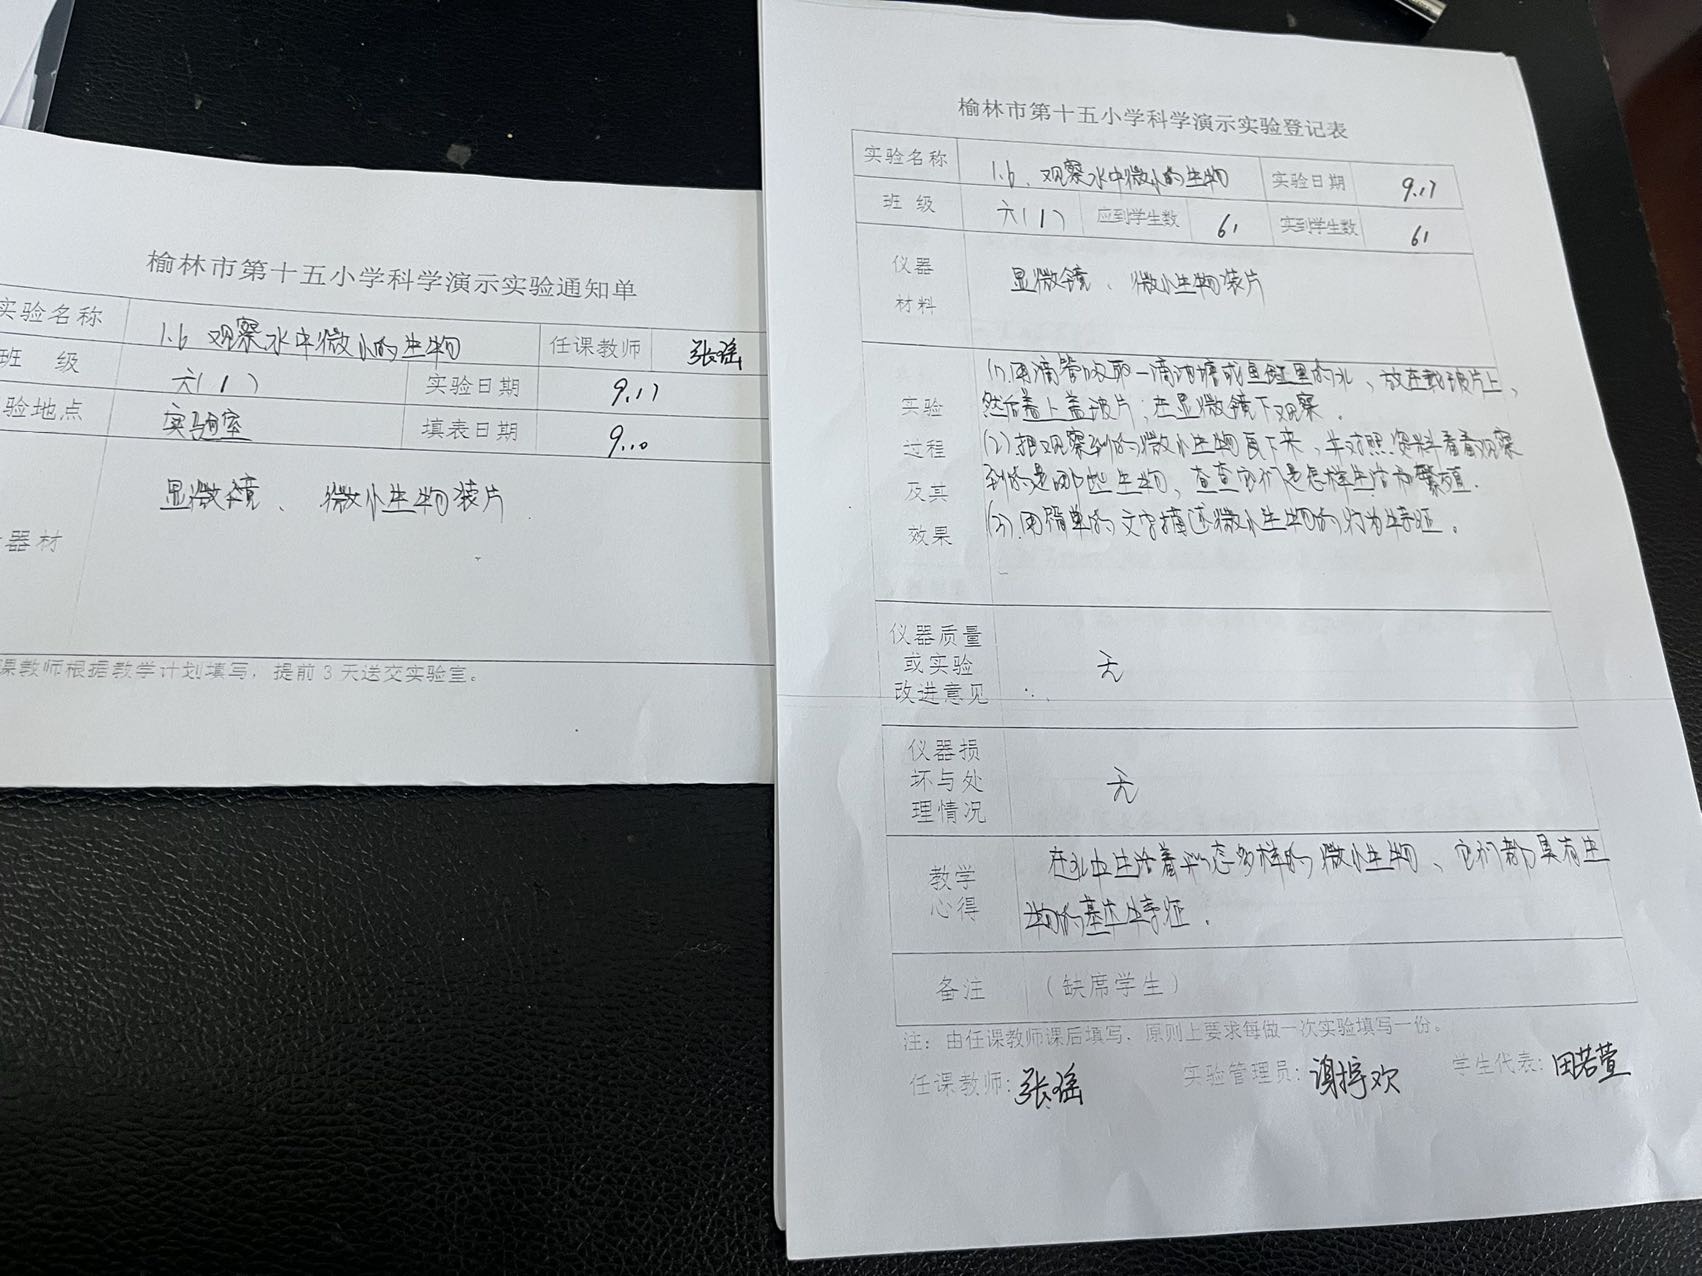 榆林市第十五小学科学演示实验通知单
实验名称 1.6 观察水中微小的生物 任课教师 张瑶
班 级 六(1) 实验日期 9.17
验地点 实验室 填表日期 9.10
器材 显微镜、微小生物装片
课教师根据教学计划填写，提前3天送交实验室。
榆林市第十五小学科学演示实验登记表
实验名称 1.6、观察水中微小的生物 实验日期 9.17
班 级 六(1) 应到学生数 61 实到学生数 61
仪器 材料 显微镜、微小生物装片
实验 过程 及其 效果
(1).用滴管吸取一滴池塘或鱼缸里的水、放在载玻片上、
然后盖上盖玻片,在显微镜下观察.
(2)把观察到的微小生物画下来,并对照资料看看观察
到的是哪些生物、查查它们是怎样生活和繁殖.
(3).用简单的文字描述微小生物的行为特征。
仪器质量
或实验 无
改进意见
仪器损
坏与处 无
理情况
教学 心得
在水中生活着形态多样的微小生物、它们都具有生
物的基本特征.
备注 （缺席学生）
注：由任课教师课后填写，原则上要求每做一次实验填写一份。
任课教师: 张瑶 实验管理员: 欢 学生代表: 田若萱